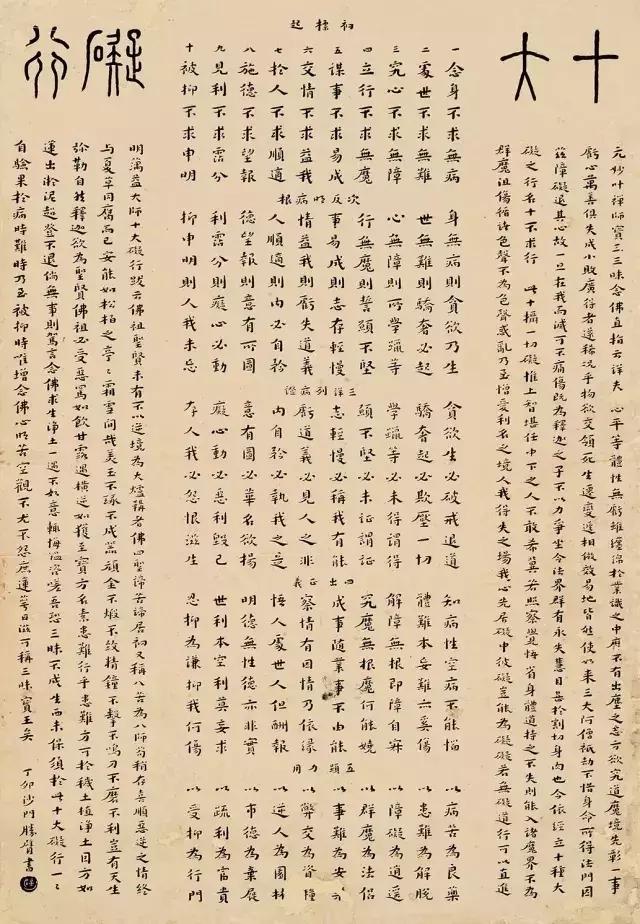 十大
礙行
元妙叶禪師寶王三昧念佛直指云詳夫 心平等體性無虧雖纏綿於業識之中靡不有出塵之志方欲究道魔境先彰一事
虧心萬善俱失成小敗廣得者還稀況乎物欲交傾死生遷變遞相倣效易地皆然使如來三大阿僧祇劫不惜身命所得法門因
茲障礙退其心故一旦在我而滅可不痛傷既為釋迦之子不以力爭坐令法界群有永失慧目甚於割切身肉也今依經立十種大
礙之行名十不求行 此十攝一切礙惟上智堪任中下之人不敢希冀若照察覺悟省身體道持之不失則能入諸魔界不為
群魔沮傷循諸色聲不為色聲或亂乃至憎愛利名之境人我得失之場我心先居礙中彼礙豈能為礙礙若無礙道行可以直進
初標起
一念身不求無病
二處世不求無難
三究心不求無障
四立行不求無魔
五謀事不求易成
六交情不求益我
七於人不求順適
八施德不求望報
九見利不求霑分
十被抑不求申明
次反明病根
身無病則貪欲乃生
世無難則驕奢必起
心無障則所學躐等
行無魔則誓願不堅
事易成則志存輕慢
情益我則虧失道義
人順適則內必自矜
德望報則意有所圖
利霑分則癡心必動
抑申明則人我未忘
三詳列病證
貪欲生必破戒退道
驕奢起必欺壓一切
學躐等必未得謂得
願不堅必未證謂證
志輕慢必稱我有能
虧道義必見人之非
內自矜必執我之是
意有圖必華名欲揚
癡心動必惡利毀己
存人我必怨恨滋生
四正出義
知病性空病不能惱
體難本妄難亦奚傷
解障無根即障自寂
究魔無根魔何能嬈
成事隨業事不由能
察情有因情乃依緣
悟人處世人但酬報
明德無性德亦非實
世利本空利莫妄求
忍抑為謙抑我何傷
五顯力用
以病苦為良藥
以患難為解脫
以障礙為逍遙
以群魔為法侶
以事難為安樂
以弊交為資糧
以逆人為園林
以市德為棄屣
以疏利為富貴
以受抑為行門
明蕅益大師十大礙行跋云佛祖聖賢未有不以逆境為大爐鞴者佛四聖諦苦諦居初又稱八苦為八師苟稍存喜順惡逆之情終
與夏草同腐而已安能如松柏之亭亭霜雪間哉美玉不琢不成器頑金不煅不致精鐘不擊不鳴刀不磨不利豈有天生
彌勒自然釋迦欲為聖賢佛祖必受惡罵如飲甘露遇橫逆如獲至寶方名素患難行乎患難方可於穢土植淨土因方如
蓮出淤泥超登不退倘無事則駕言念佛求生淨土一遇不如意輒悔溢咨嗟吾恐三昧不成生西未保須於此十大礙行一一
自驗果於病時難時乃至被抑時唯增念佛心明苦空觀不尤不怨庶蓮萼日滋可稱三昧寶王矣
丁卯沙門勝臂書